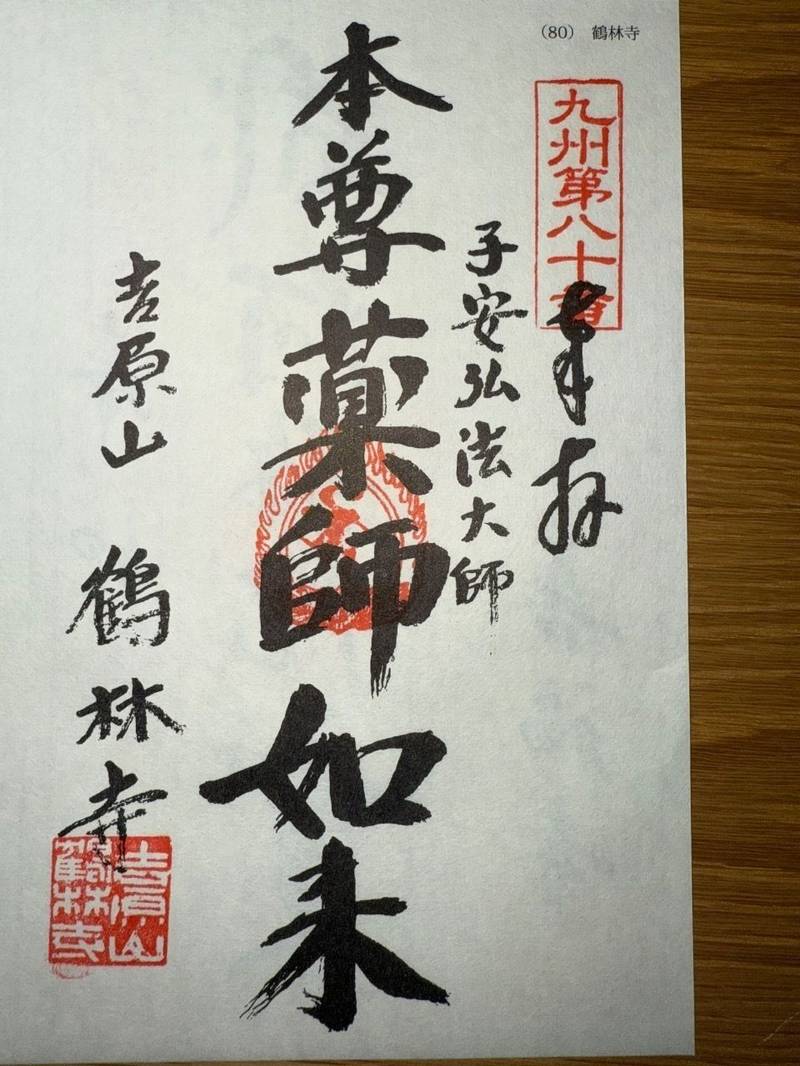 （80）　鶴林寺
九州第八十番
奉拝
子安弘法大師
本尊薬師如来
吉原山　鶴林寺
吉原山
鶴林寺